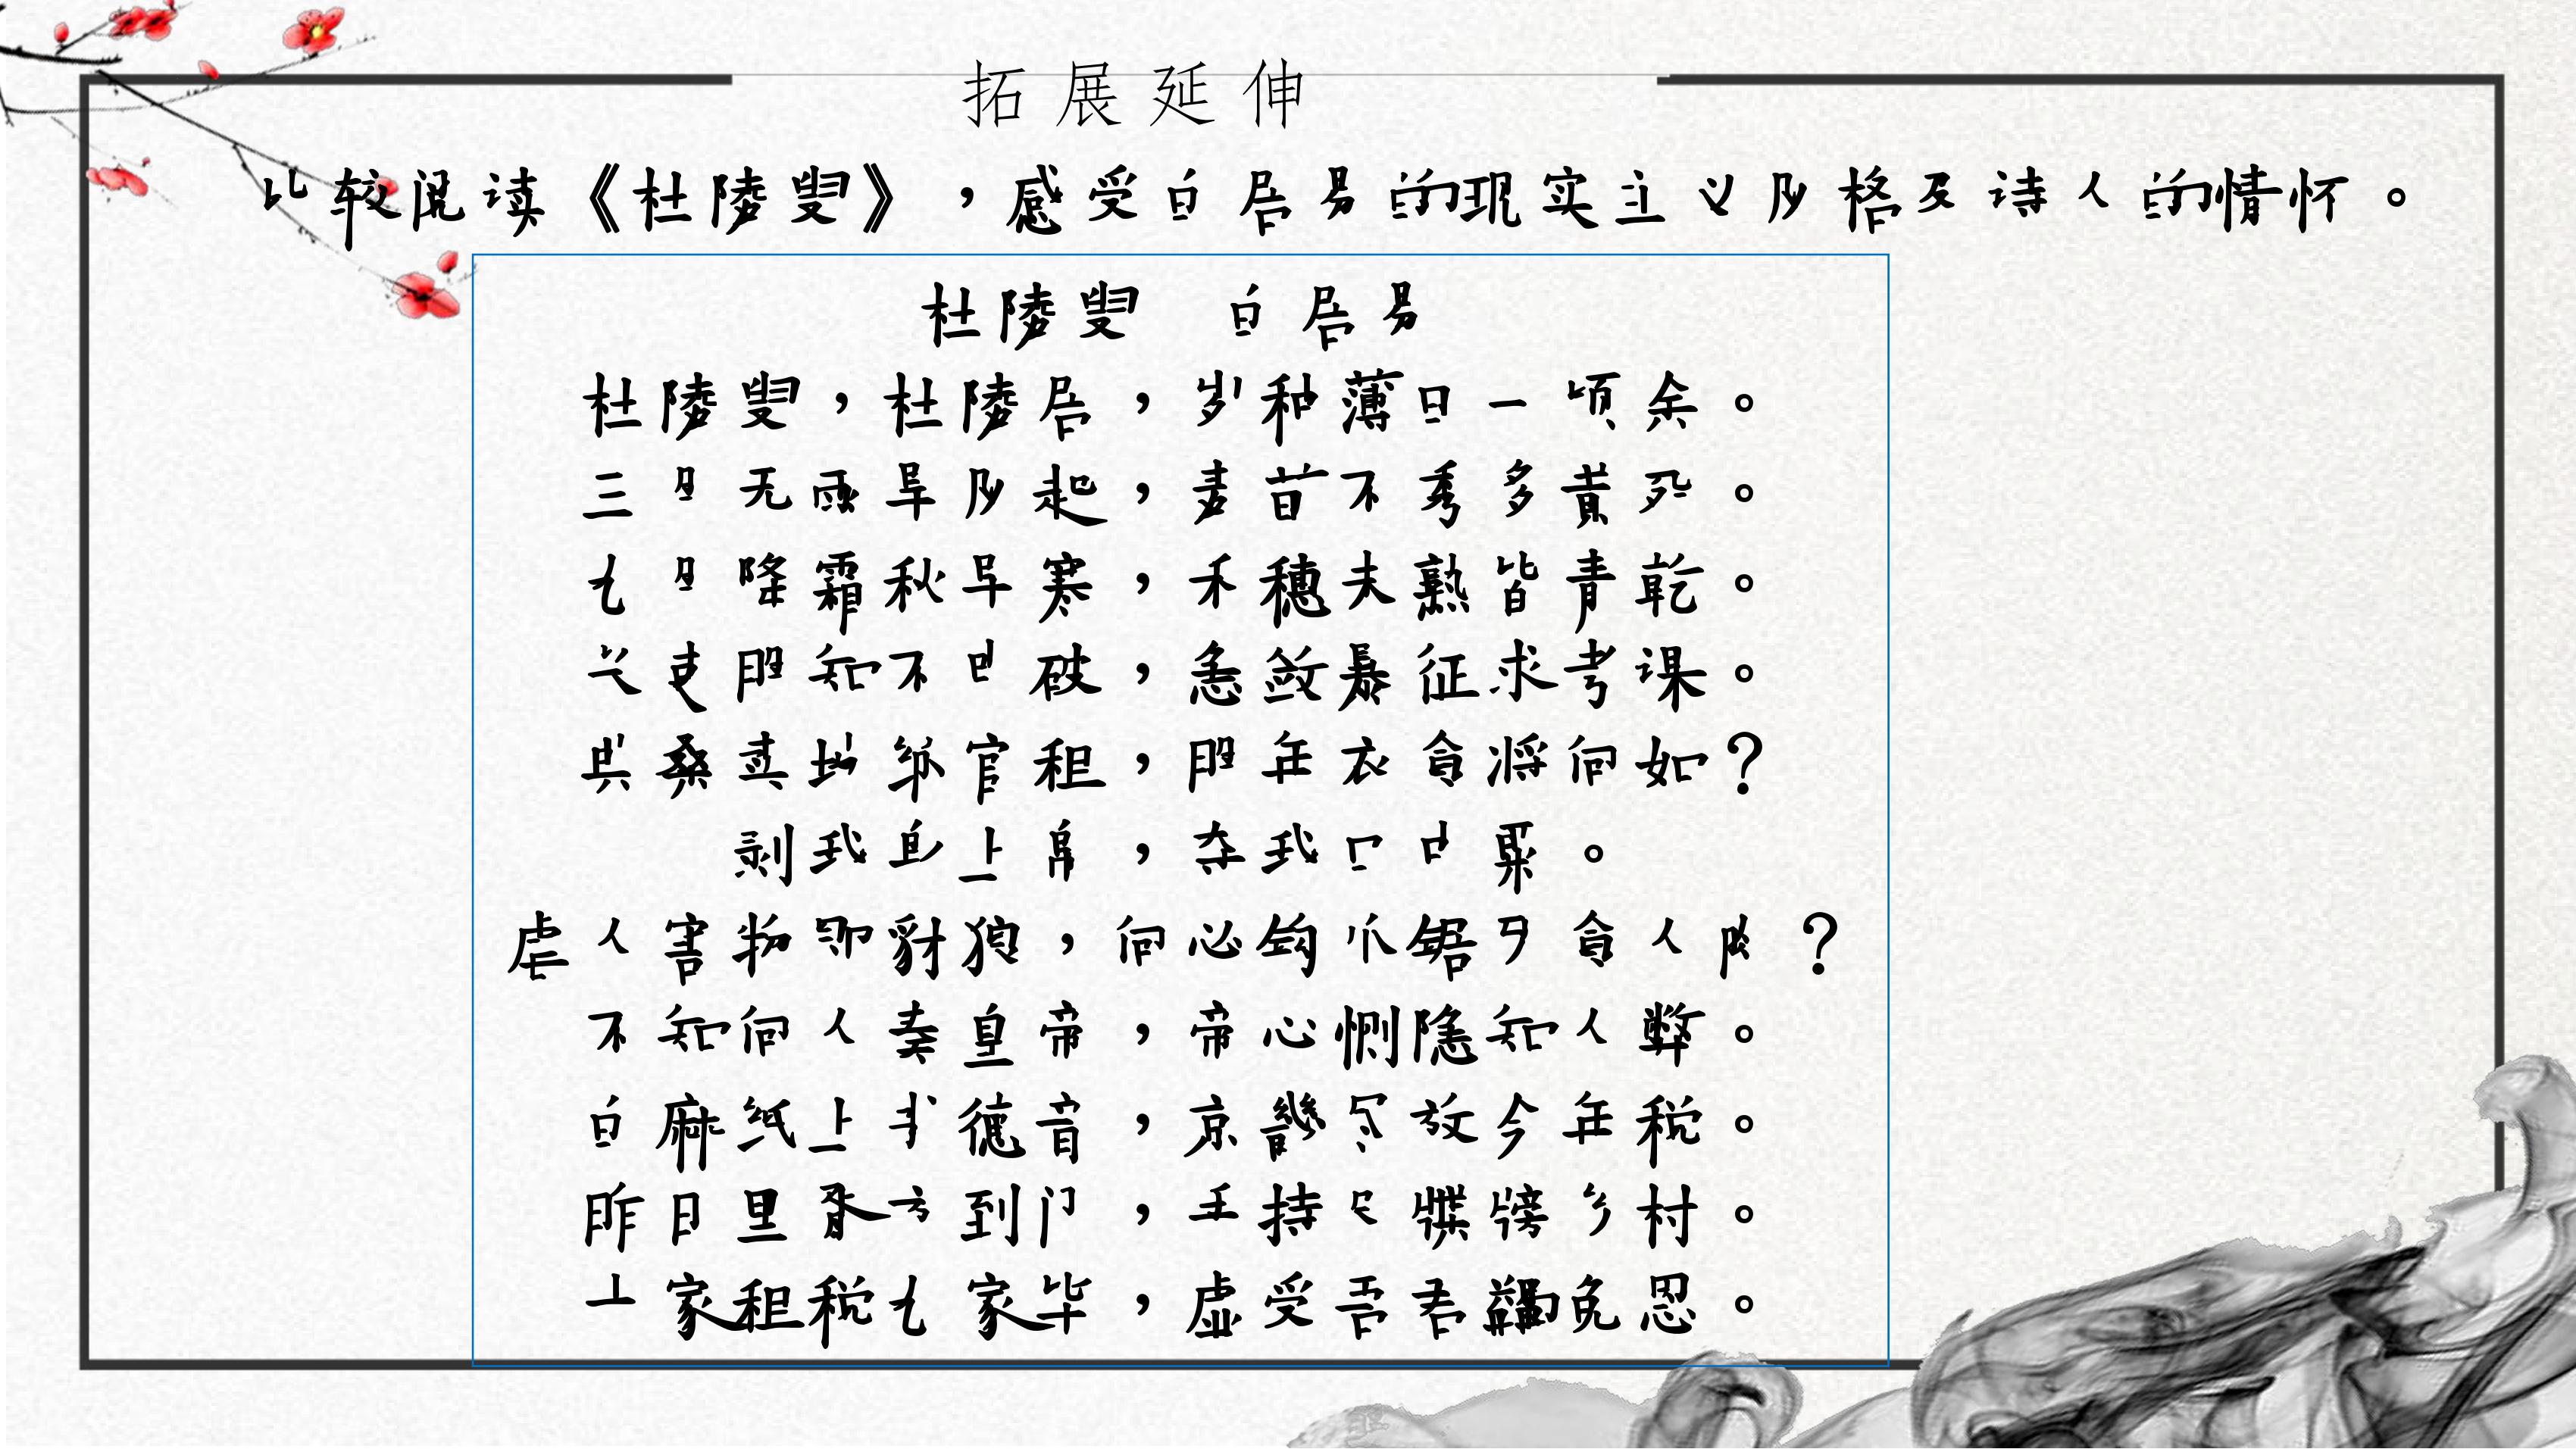 拓展延伸
比较阅读《杜陵叟》，感受白居易的现实主义风格及诗人的情怀。
杜陵叟 白居易
杜陵叟，杜陵居，岁种薄田一顷余。
三月无雨旱风起，麦苗不秀多黄死。
九月降霜秋早寒，禾穗未熟皆青乾。
长吏明知不申破，急敛暴征求考课。
典桑卖地纳官租，明年衣食将何如？
剥我身上帛，夺我口中粟。
虐人害物即豺狼，何必钩爪锯牙食人肉？
不知何人奏皇帝，帝心恻隐知人弊。
白麻纸上书德音，京畿尽放今年税。
昨日里胥方到门，手持尺牒牓乡村。
十家租税九家毕，虚受吾君蠲免恩。